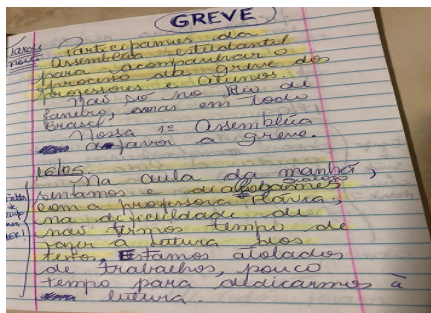 GREVE
Participamos da
Assembléia estudantil
para acompanhar o
processo da greve dos
professores e alunos.
Não só no Rio de
Janeiro, mas em todo
Brasil.
Nossa 1ª Assembléia
a favor a greve.
Na aula da manhã,
sentamos e dialogamos
com a professora
na dificuldade de
não termos tempo de
fazer a leitura dos
textos, Estamos atolados
de trabalhos, pouco
tempo para dedicarmos à
leitura.